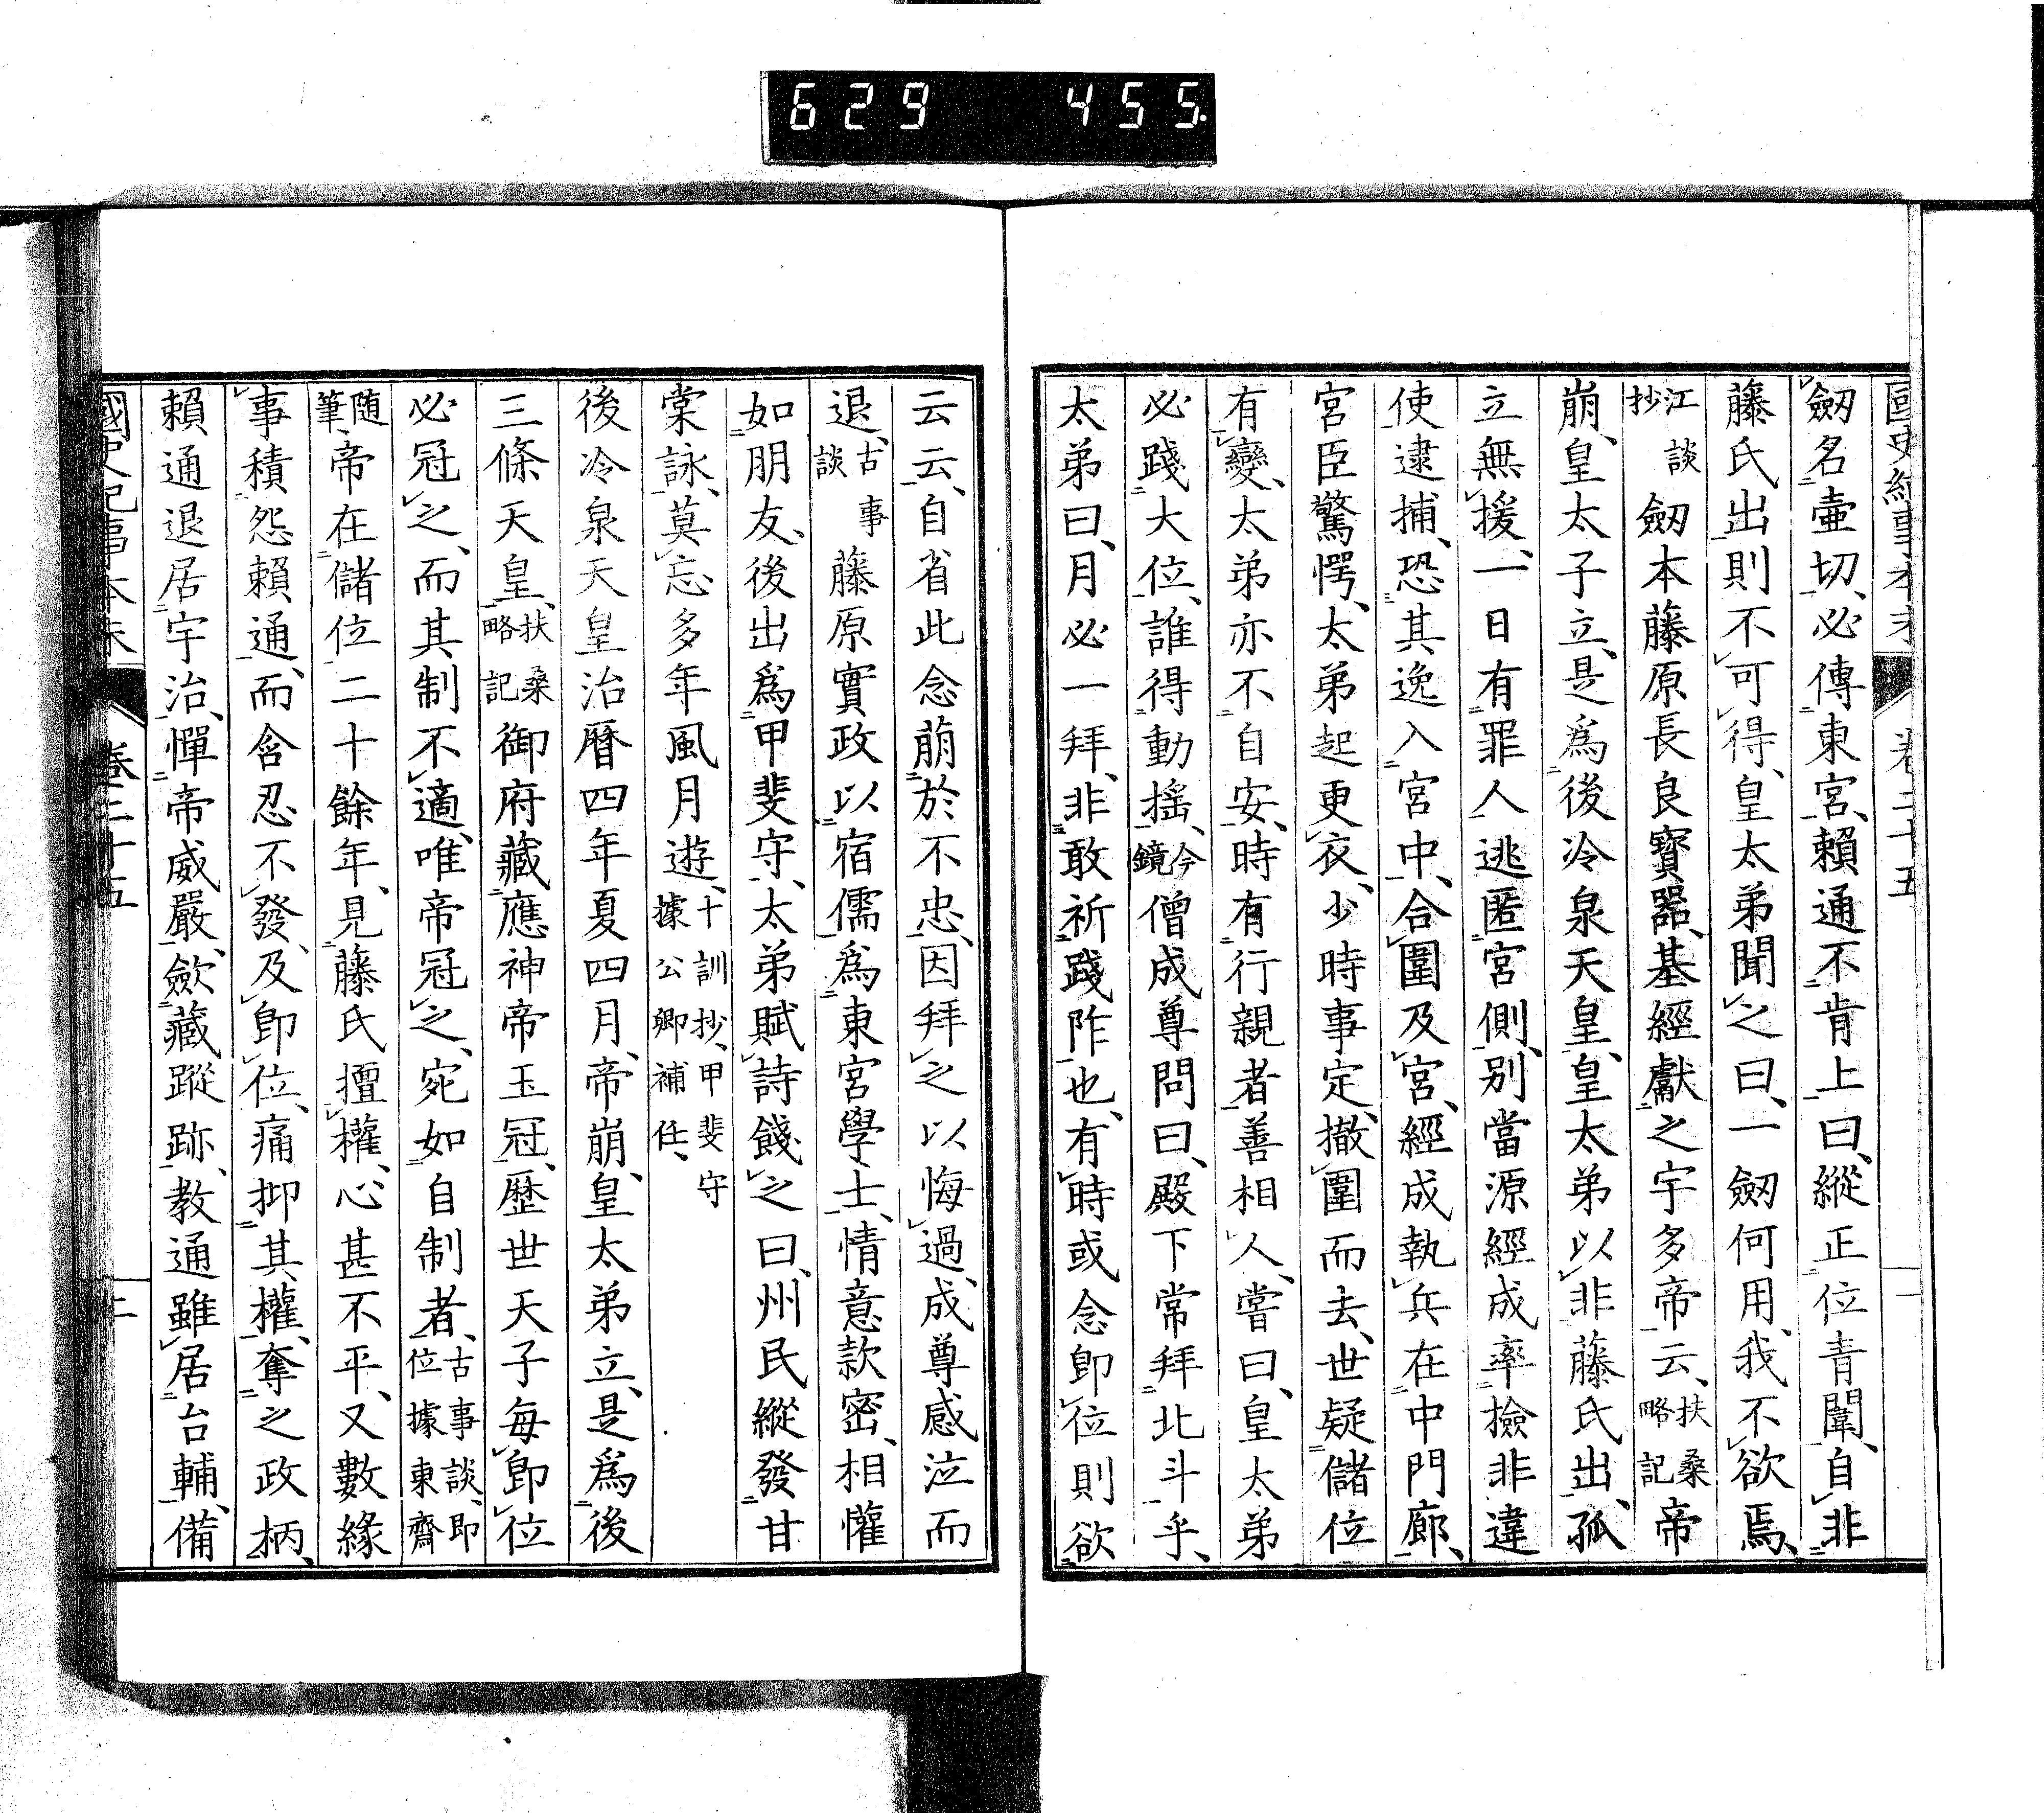 629 455
國史紀事本末 卷二十五 一
劔名壷切、必傳東宮、賴通不肯上曰、縱正位青闈、自非
藤氏出則不可得、皇太弟聞之曰、一劔何用、我不欲焉、
江談抄劔本藤原長良寶器、基經獻之宇多帝云、扶桑略記帝
崩、皇太子立、是爲後冷泉天皇、皇太弟以非藤氏出、孤
立無援、一日有罪人逃匿宮側、別當源經成率撿非違
使逮捕、恐其逸入宮中、合圍及宮、經成執兵在中門廊、
宮臣驚愕、太弟起更衣、少時事定、撤圍而去、世疑儲位
有變、太弟亦不自安、時有行親者善相人、嘗曰、皇太弟
必踐大位、誰得動搖、今鏡僧成尊問曰、殿下常拜北斗乎、
太弟曰、月必一拜、非敢祈踐阼也、有時或念卽位則欲
云云、自省此念萠於不忠、因拜之以悔過、成尊感泣而
退、古事談藤原實政以宿儒爲東宮學士、情意款密、相懽
如朋友、後出爲甲斐守、太弟賦詩餞之曰、州民縱發甘
棠詠、莫忘多年風月遊、十訓抄、甲斐守據公卿補任、
後冷泉天皇治曆四年夏四月、帝崩、皇太弟立、是爲後
三條天皇、扶桑略記御府藏應神帝玉冠、歷世天子每卽位
必冠之、而其制不適、唯帝冠之、宛如自制者、古事談、卽位據東齋
随筆、帝在儲位二十餘年、見藤氏擅權、心甚不平、又數緣
事積怨賴通、而含忍不發、及卽位、痛抑其權、奪之政柄、
賴通退居宇治、憚帝威嚴、歛藏蹤跡、教通雖居台輔、備
國史紀事本末 卷二十五 二